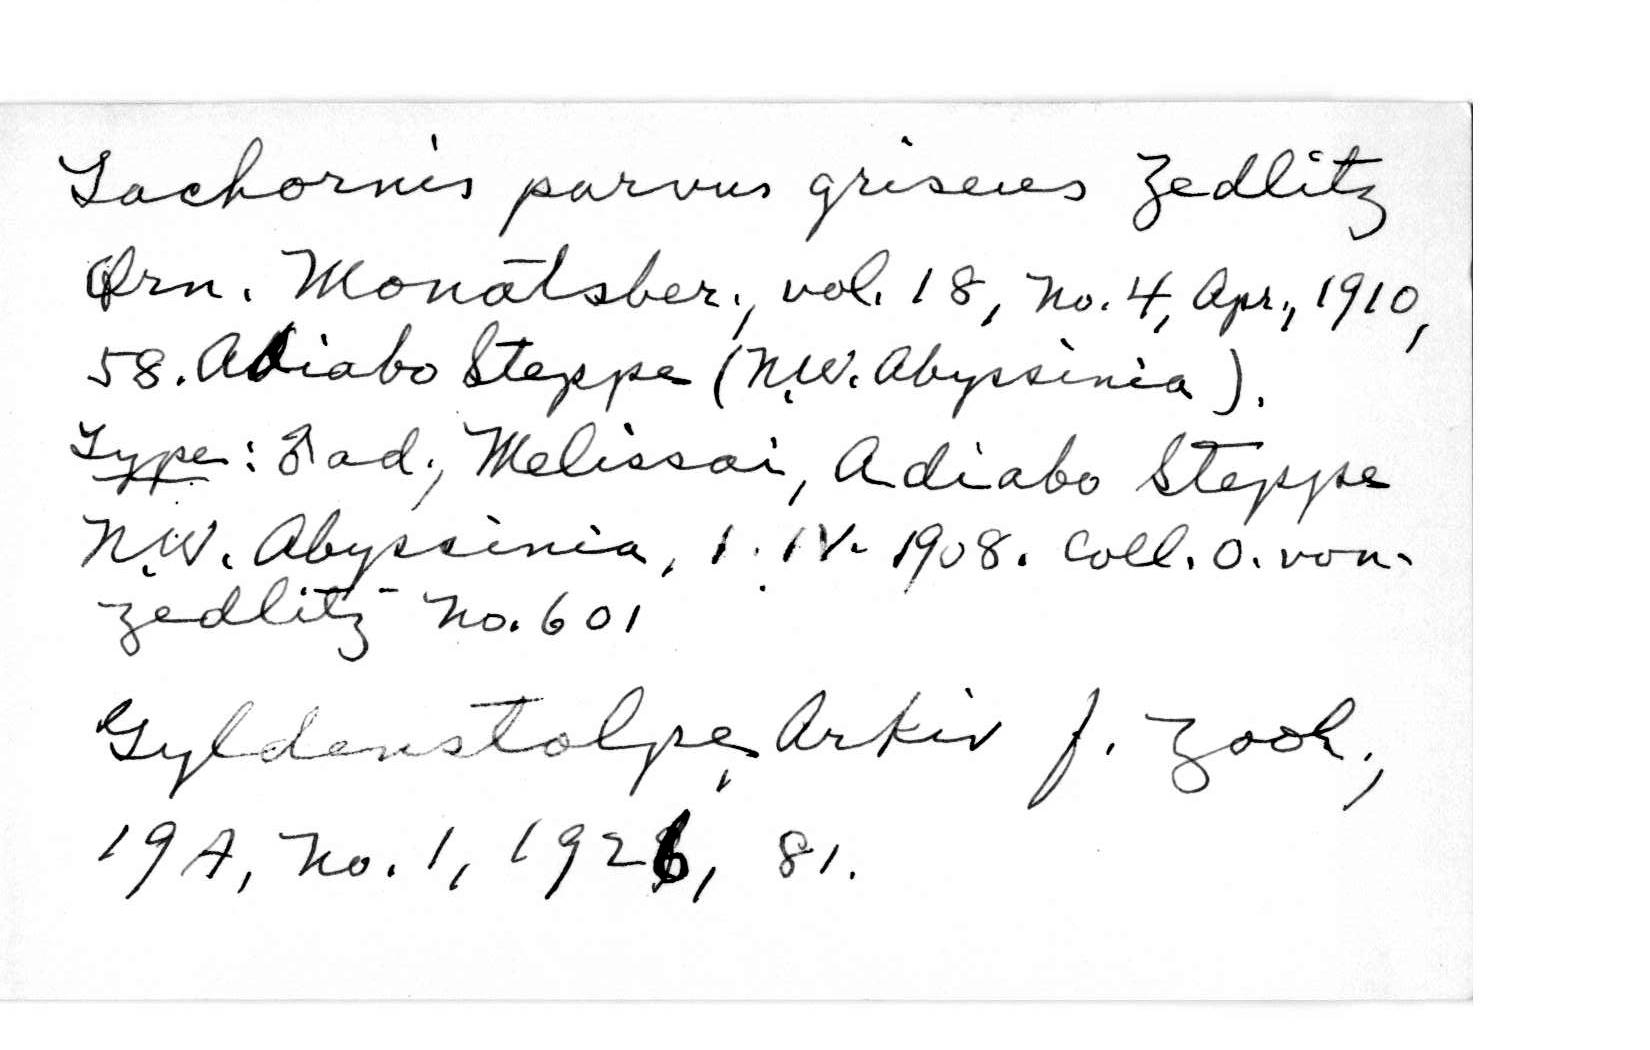 Tachornis parvus griseus Zedlitz
Orn. Monatsber., vol. 18, No. 4, Apr., 1910,
58. Adiabo Steppe (N.W. Abyssinia).
Type: ad., Melissai, Adiabo Steppe
N.W. Abyssinia, 1. IV. 1908. Coll. O. von
Zedlitz No. 601
Gyldenstolpe, Arkiv f. Zool.,
19A, No. 1, 1926, 81.